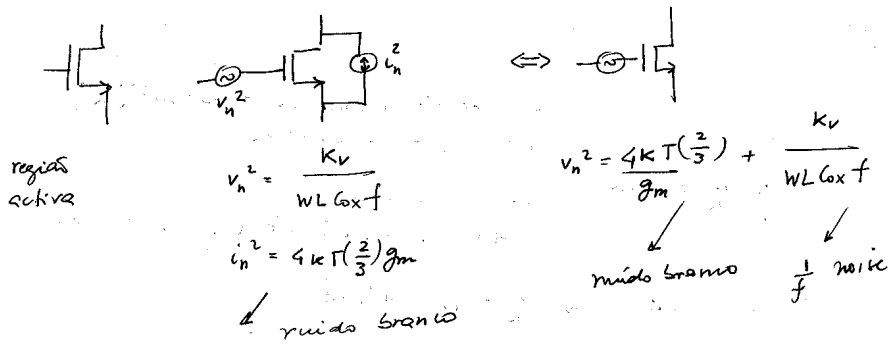 i_n^2
v_n^2
⇔
região
activa
v_n^2 = K_v / (WL Cox f)
i_n^2 = 4KT(2/3) gm
ruido branco
v_n^2 = 4KT/gm (2/3) + K_v / (WL Cox f)
ruído branco
1/f noise